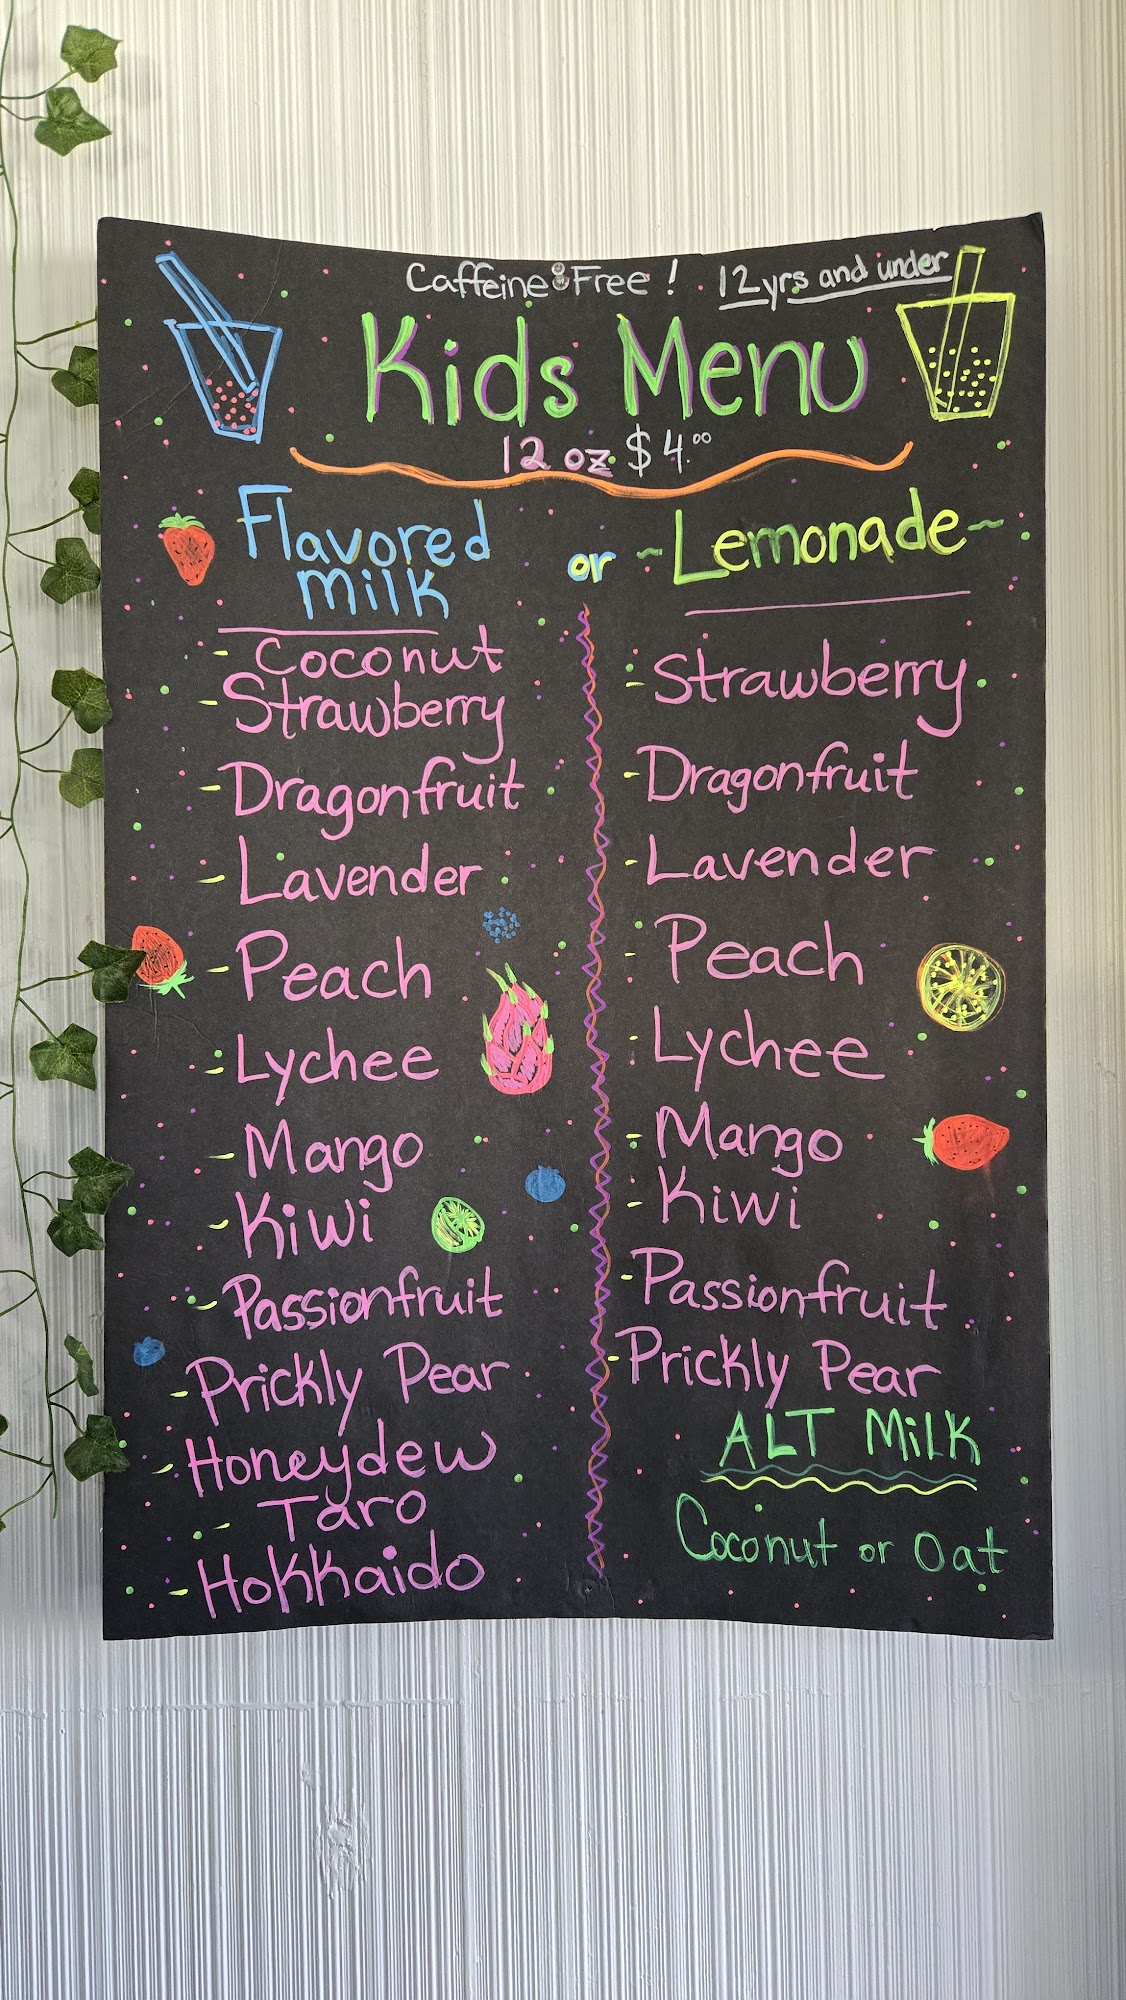 Caffeine Free! 12yrs and under
Kids Menu
12 oz $4.00
Flavored
milk
or
~Lemonade~
- Coconut
- Strawberry
- Dragonfruit
- Lavender
- Peach
- Lychee
- Mango
- Kiwi
- Passionfruit
- Prickly Pear
- Honeydew
- Taro
- Hokkaido
- Strawberry
- Dragonfruit
- Lavender
- Peach
- Lychee
- Mango
- Kiwi
- Passionfruit
- Prickly Pear
ALT MiLK
Coconut or Oat